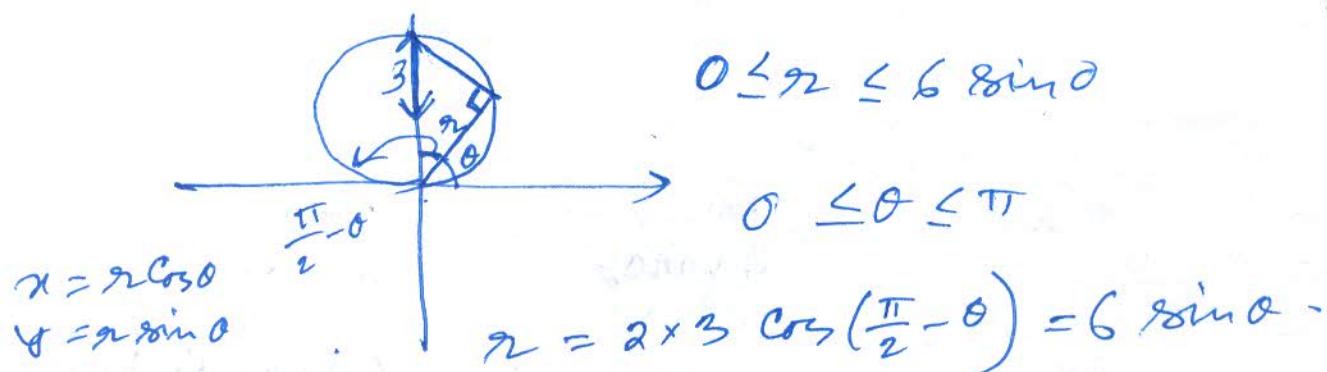 3
r
θ
0 ≤ r ≤ 6 sin θ
π/2 - θ
0 ≤ θ ≤ π
x = r Cos θ
y = r sin θ
r = 2 × 3 Cos(π/2 - θ) = 6 sin θ.